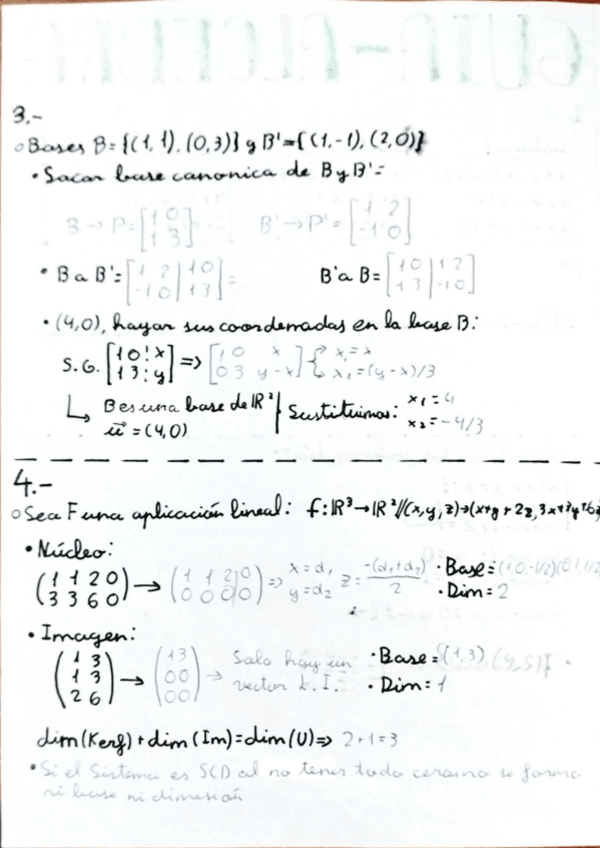 3.-
○ Bases B={(1,1),(0,3)} y B'={(1,-1),(2,0)}
• Sacar base canonica de B y B'=
B → P=[1 0; 1 3] B' → P'=[1 2; -1 0]
• B a B'=[1 2 | 1 0; -1 0 | 1 3]= B' a B=[1 0 | 1 2; 1 3 | -1 0]
• (4,0), hayar sus coordenadas en la base B:
S.G. [1 0 ¦ x; 1 3 ¦ y] => [1 0 x; 0 3 y-x] { x₁=x
x₂=(y-x)/3
B es una base de ℝ² | Sustituimos: x₁=4
u⃗=(4,0) x₂=-4/3
4.-
○ Sea F una aplicación lineal: f:ℝ³→ℝ²//(x,y,z)→(x+y+2z,3x+3y+6z
• Núcleo:
(1 1 2 0; 3 3 6 0) → (1 1 2 0; 0 0 0 0) => x=d₁ y=d₂ z=-(d₁+d₂)/2 • Base=(1,0,-1/2)(0,1,-1/2)
• Dim=2
• Imagen:
(1 3; 1 3; 2 6) → (1 3; 0 0; 0 0) → Solo hay un • Base={(1,3)
vector L.I. • Dim=1
dim(Kerf)+dim(Im)=dim(U)=> 2+1=3
• Si el Sistema es SCD al no tener todo ceros no se forma
ni base ni dimensión